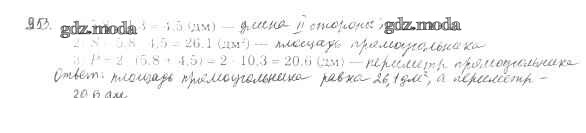 953. gdz.moda 3 = 4,5 (дм) — длина II стороны; gdz.moda
2. S = 5,8 · 4,5 = 26,1 (дм²) — площадь прямоугольника
3. P = 2 · (5,8 + 4,5) = 2 · 10,3 = 20,6 (дм) — периметр прямоугольника
Ответ: площадь прямоугольника равна 26,1 дм², а периметр —
20,6 дм